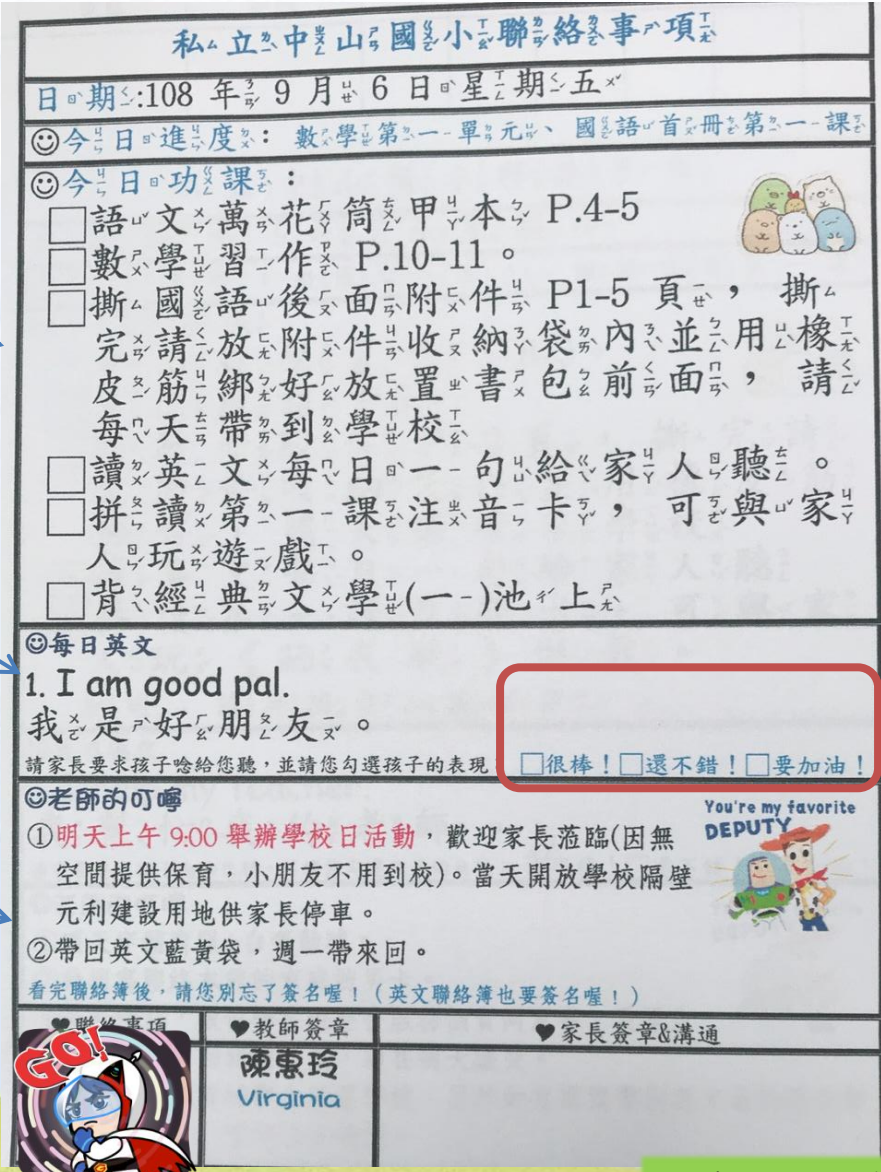 私立中山國小聯絡事項
日期:108 年 9 月 6 日星期五
☺今日進度：數學第一單元、國語首冊第一課
☺今日功課：
□語文萬花筒甲本 P.4-5
□數學習作 P.10-11。
□撕國語後面附件 P1-5 頁，撕
完請放附件收納袋內並用橡
皮筋綁好放置書包前面，請
每天帶到學校
□讀英文每日一句給家人聽。
□拼讀第一課注音卡，可與家
人玩遊戲。
□背經典文學(一)池上
☺每日英文
1. I am good pal.
我是好朋友。
請家長要求孩子唸給您聽，並請您勾選孩子的表現 □很棒！□還不錯！□要加油！
☺老師的叮嚀
You're my favorite
DEPUTY
①明天上午 9:00 舉辦學校日活動，歡迎家長蒞臨(因無
空間提供保育，小朋友不用到校)。當天開放學校隔壁
元利建設用地供家長停車。
②帶回英文藍黃袋，週一帶來回。
看完聯絡簿後，請您別忘了簽名喔！（英文聯絡簿也要簽名喔！）
♥聯絡事項 ♥教師簽章 ♥家長簽章&溝通
GO!
陳惠玲
Virginia